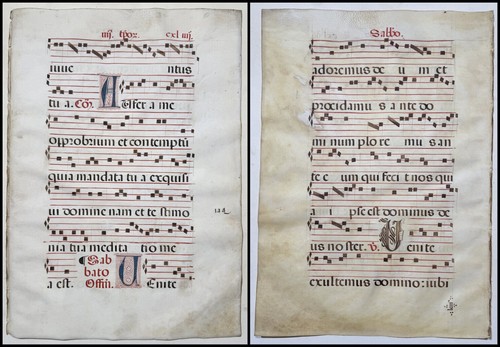 iiij. tpor. cxl iiij.
iuue ntus
tu a. Com. A ufer a me
opprobrium et contemptū
quia mandata tu a exquisi
ui domine nam et te stimo
nia tua medita tio me
a est. Sab
bato
Offm. U Enite
Sabbo.
adoremus de u m et
procidamu s a nte do
mi num plo re mu s an
te e um qui fec i t nos qui
a i pse est dominus de
us no ster. V. U enite
exultemus domino: iubi